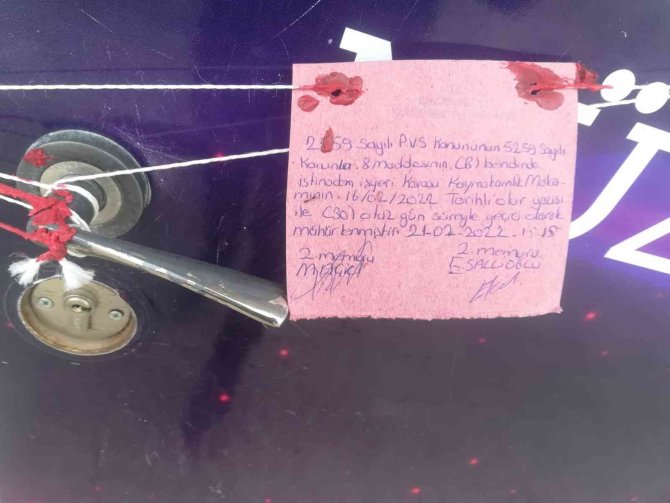 2559 Sayılı P.V.S Kanununun 5259 Sayılı
Kanunla 8 maddesinin (B) bendinde
istinaden işyeri Karasu Kaymakamlık Maka-
mının 16/02/2022 Tarihli olur yazısı
ile (30) otuz gün süreyle geçici olarak
mühürlenmiştir. 21-02-2022
P. memuru
E SALLIOĞLU